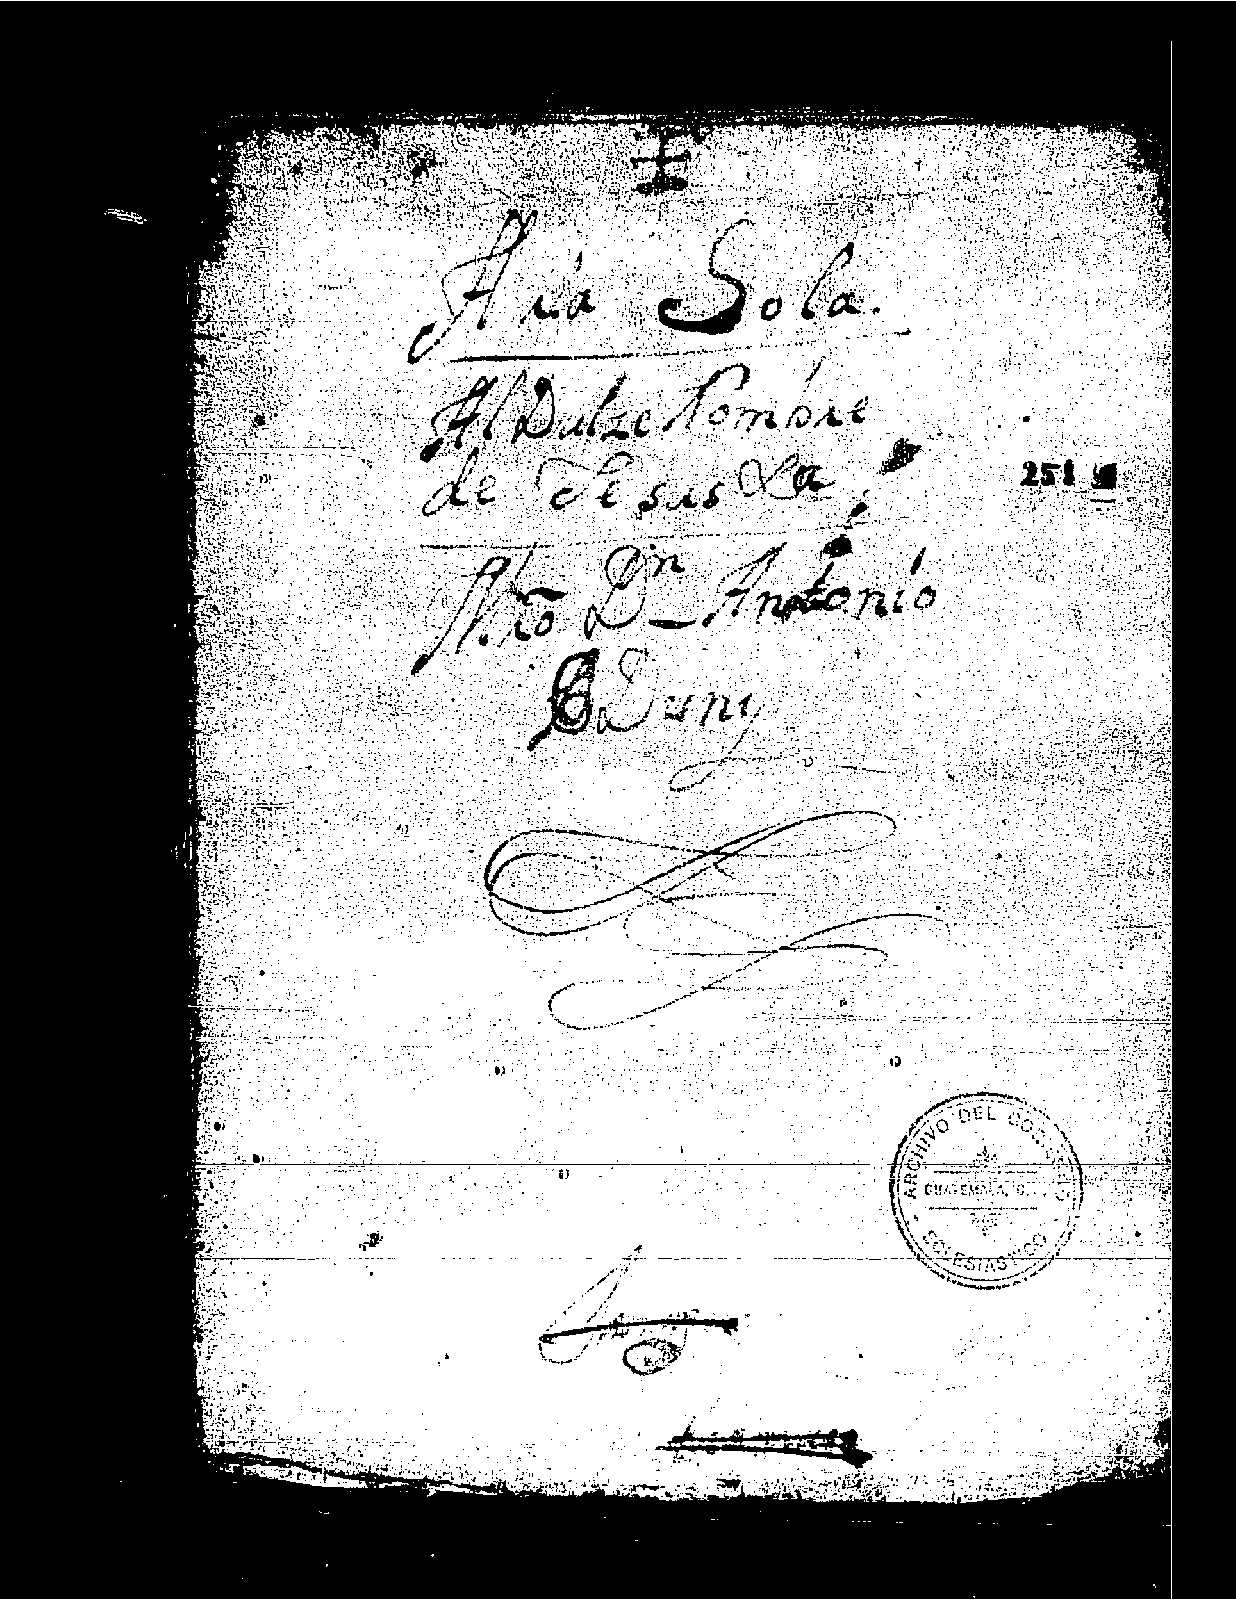 Aria Sola.
Al Dulze Nombre
de Jesus La
251
Mro Dn Antonio
Duni
ARCHIVO DEL
GUATEMALA, C.
ECLESIASTICO